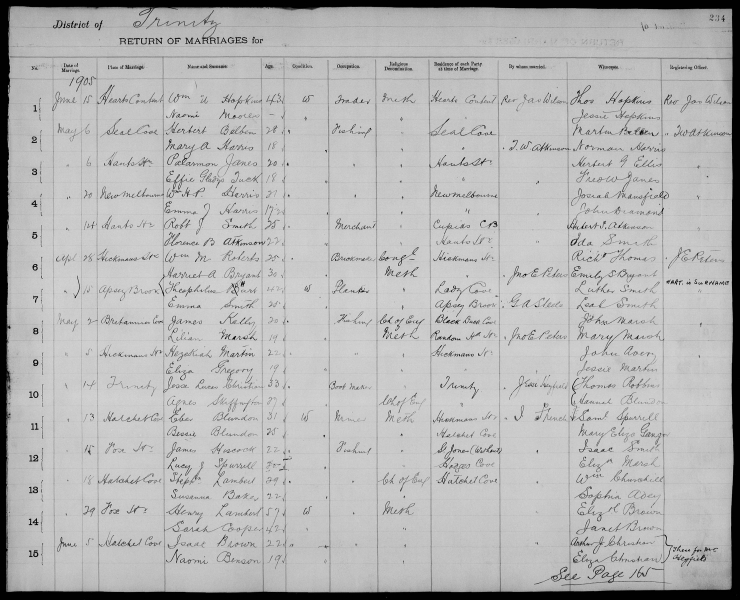 234
District of Trinity
RETURN OF MARRIAGES for
No. Date of Marriage. Place of Marriage. Name and Surname. Age. Condition. Occupation. Religious Denomination. Residence of each Party at time of Marriage. By whom married. Witnesses. Registering Officer.
1905
1 June 15 Hearts Content Wm U Hopkins 43 W Trader Meth Hearts Content Rev Jas Wilson Thos Hopkins Rev Jas Wilson
Naomi Moores - " Jessie Hopkins
2 May 6 Seal Cove Herbert 28 Fishing " Seal Cove Martin " T.W Atkinson
Mary A Harris 18 " " T. W Atkinson Norman Harris
3 " 6 Hants Hr James 20 " Hants Hr Herbert G Ellis
Effie Gladys Tuck 18 " " Fred W James
4 " 20 New Melbourne Wm H P Harris 21 " New Melbourne Josiah Mansfield
Emma J Harris 17 " " John
5 " 14 Hants Hr Robt J Smith 25 Merchant " Cupids CB Atkinson
Florence B Atkinson 22 " Hants Hr Ida Smith
6 Apl 28 Hickmans Hr Wm M Roberts 25 Congl Hickmans Hr Richd Thomas " J E Peters
Harriet A Bryant 30 Meth " " Jno E Peters Emily S Bryant
HART. is SURNAME
7 " 15 Apsey Brook Theophilus Hart 42 W Planter " Lady Cove Luther Smith
Emma Smith 25 " Apsey Brook " G A Steele Leah Smith
8 May 2 Britannia Cove James Kelly 20 Fishing Ch of Eng Black Duck Cove John Marsh
Lilian Marsh 19 Meth Random Hd Hr " Jno E Peters Mary Marsh
9 " 5 Hickmans Hr Hezekiah Martin 22 " Hickmans Hr John Avery
Eliza Gregory 19 " " Jessie Martin
10 " 14 Trinity Christian 33 Boot maker " Trinity " Jesse Heyfield Thomas Robbins
Agnes Skiffington 27 Ch of Eng " Hannah Blundon
11 " 13 Hatchet Cove Eber Blundon 31 W Miner Meth Hickmans Hr " I French Saml Spurrell
Bessie Blundon 25 " Hatchet Cove Mary Eliza
12 " 15 Fox Hr James Hiscock 22 Fishing " St Jones (Without) Isaac Smith
Lucy J Spurrell 20 " Hatchet Cove Eliza Marsh
13 " 18 Hatchet Cove Stephn Lambert 29 Ch of Eng Hatchet Cove Wm Churchill
Susanna Baker 22 " " Sophia Avey
14 " 29 Fox Hr Henry Lambert 57 W Meth Elizth Brown
Sarah Cooper 42 " Janet Brown
15 June 5 Hatchet Cove Isaac Brown 22 " Arthur J Christian
Naomi Benson 19 " Eliza Christian
These for Mr Heyfield
See Page 165